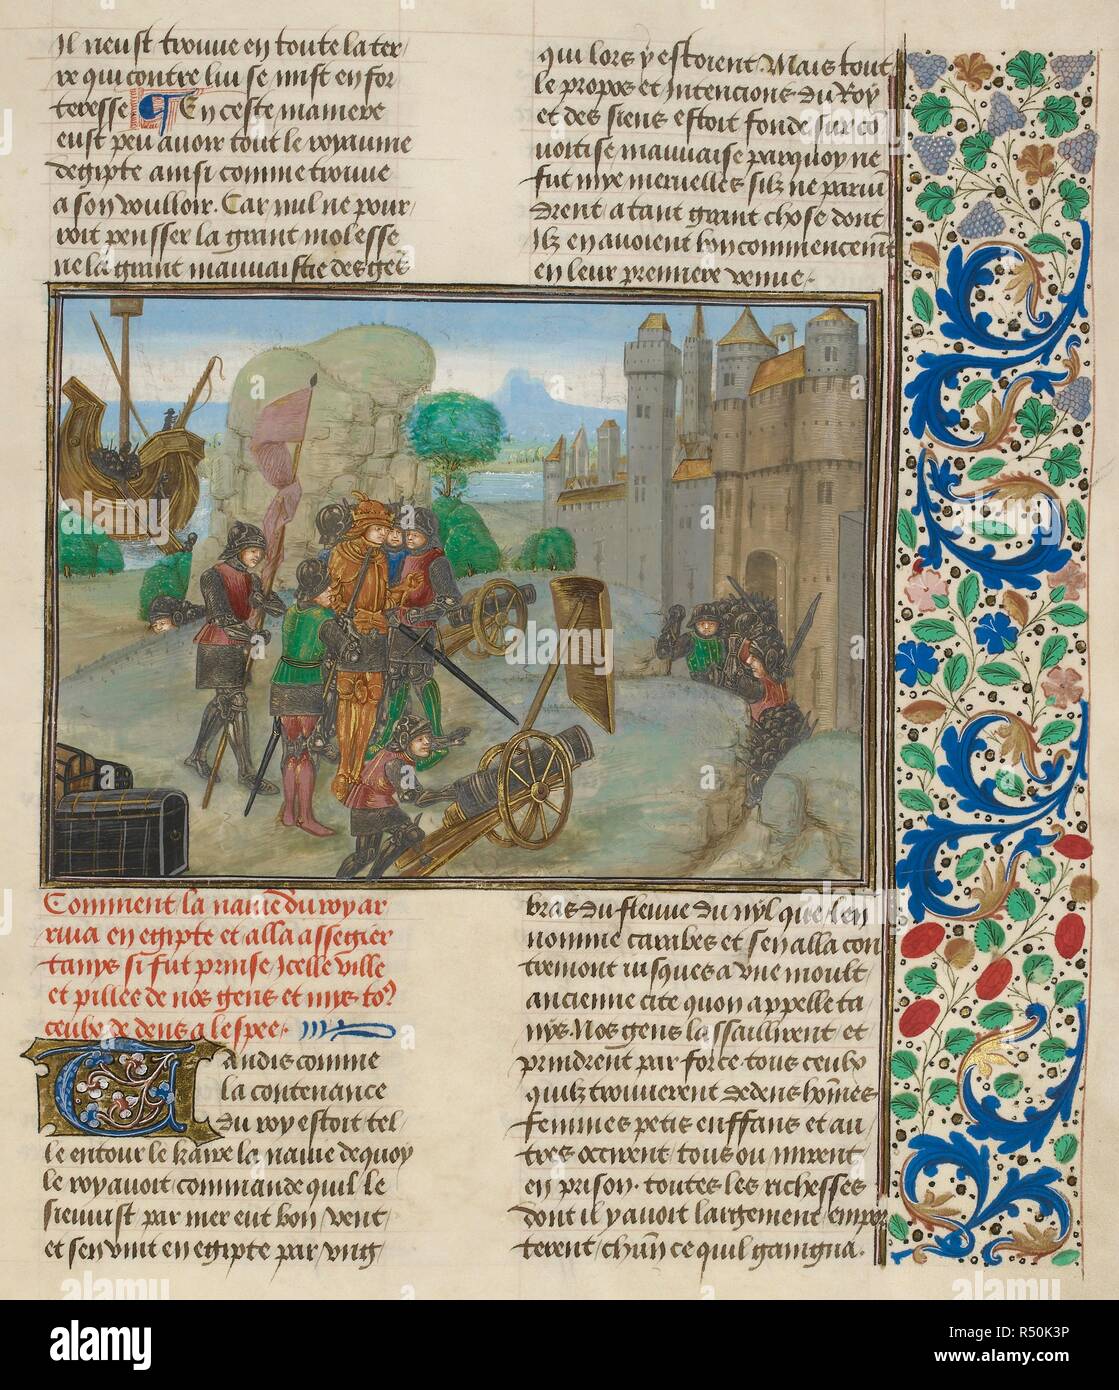 Il neust trouve en toute la ter-
re qui contre lui se mist en for
teresse En ceste maniere
eust peu avoir tout le royaume
degipte ainsi comme trouve
a son voulloir. Car nul ne pour-
roit pensser la grant molesse
ne la grant mauvaistie des gēs
qui lors y estoient Mais tout
le propos et intencions du Roy
et des siens estoit fonde sur co
voitise mauvaise parquoy ne
fut mye merveilles silz ne parvīn
drent a tant grant chose dont
Ilz en avoient bon commencemēt
en leur premiere venue.
Comment la navie du roy ar
riva en egipte et alla assegier
tanys si fut prinse Icelle ville
et pillee de nos gens et mys to9
ceulx de dens a lespee.
Tandis comme
la contenance
du roy estoit tel-
le entour le kaire la navie de quoy
le roy avoit commande quil le
sieuvist par mer eut bon vent
et sen vint en egipte par ung
bras du fleuve du nyl que len
nomme carabes et sen alla con
tremont jusques a une moult
ancienne cite quon appelle ta
nys. Nos gens lassaillirent et
prindrent par force. tous ceulx
quilz trouverent dedens hōmes
femmes petis enffans et au
tres occirent tous ou mirent
en prison. toutes les richesses
dont il y avoit largement empor
terent chūn ce quil gaigna.
alamy
Image ID: R50K3P
www.alamy.com